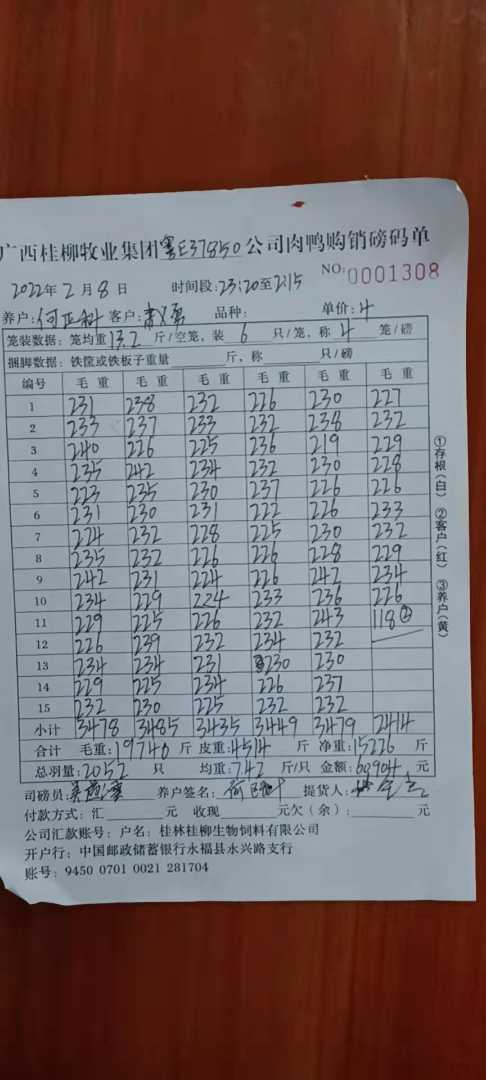 广西桂柳牧业集团粤E37850公司肉鸭购销磅码单
NO:0001308
2022年2月8日 时间段:23:20至2:15
养户:何正科 客户: 品种: 单价:4
笼装数据:笼均重13.2斤/空笼,装6只/笼,称4笼/磅
捆脚数据:铁筐或铁板子重量 斤,称 只/磅
编号 毛重 毛重 毛重 毛重 毛重 毛重
1 231 238 232 226 230 227
2 233 237 233 232 238 232
3 240 226 225 236 219 229
4 235 242 234 232 230 228
5 223 235 230 237 226 226
6 231 230 231 222 226 233
7 224 232 228 225 230 232
8 235 232 226 226 228 229
9 242 231 224 226 242 234
10 234 229 224 233 236 226
11 229 225 226 232 243 118②
12 226 239 232 234 232
13 234 234 231 230 230
14 229 225 234 226 237
15 232 230 225 232 232
小计 3478 3485 3435 3449 3479 2414
合计 毛重:19740斤 皮重:4514斤 净重:15226斤
总羽量:2052只 均重:7.42斤/只 金额:60904元
司磅员: 养户签名:何 提货人:
付款方式:汇 元 收现 元欠(余): 元
公司汇款账号:户名:桂林桂柳生物饲料有限公司
开户行:中国邮政储蓄银行永福县永兴路支行
账号:9450 0701 0021 281704
①存根(白) ②客户(红) ③养户(黄)